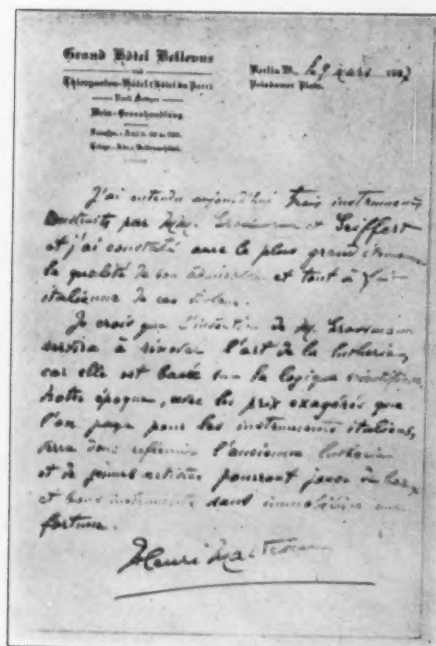 Grand Hôtel Bellevue
und
Thiergarten-Hôtel (Hôtel du Parc)
Wein-Grosshandlung
Berlin W., 29 mars
Potsdamer Platz.
J'ai entendu aujourd'hui trois instruments
construits par MM. Grossmann et Seiffert
et j'ai constaté avec le plus grand
la qualité de son admirable et tout à fait
italienne de ces violons.
Je crois que l'invention de M. Grossmann
servira à rénover l'art de la lutherie,
car elle est basée sur la logique scientifique,
Notre époque, avec les prix exagérés que
l'on paye pour les instruments italiens,
sera donc l'ancienne lutherie
et de jeunes artistes pourront jouer de
et bons instruments sans immobiliser une
fortune.
Henri Marteau